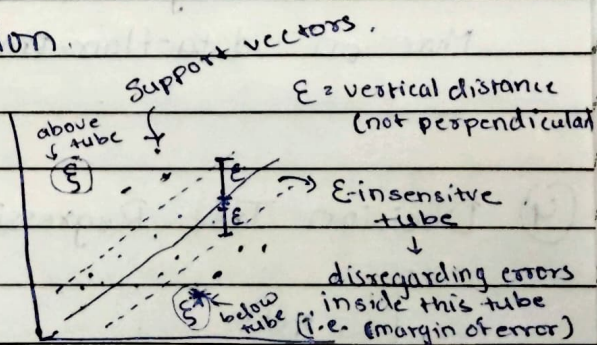 on.
Support vectors.
ε = vertical distance
(not perpendicular
above
tube
ξ
ε
ε
ε-insensitve
tube
disregarding errors
inside this tube
(i.e. (margin of error)
ξ*
below
tube